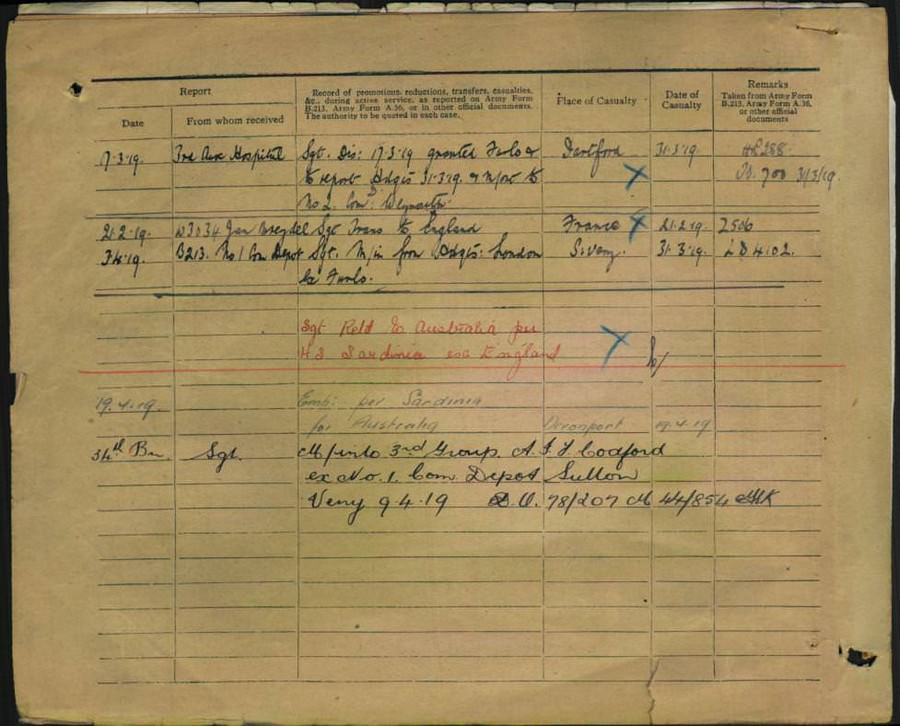 Report
Record of promotions, reductions, transfers, casualties,
&c., during active service, as reported on Army Form
B.213, Army Form A.36, or in other official documents.
The authority to be quoted in each case.
Place of Casualty
Date of
Casualty
Remarks
Taken from Army Form
B.213, Army Form A.36,
or other official
documents
Date
From whom received
17.3.19. 3rd Aux Hospital Sgt. Dis: 17.3.19 granted Furlo & Dartford 31.3.19.
to report Hdqrs 31.3.19. & M/out to 700 31/3/19
No 2. Com: Weymouth
21.2.19. W3034 Sgt Trans to England France 21.2.19. 2506
3.4.19. B213. No 1 Com Depot Sgt. M/in from Hdqrs. London S. Veny. 31.3.19. 4102.
ex Furlo.
Sgt Retd to Australia per
HS Sardinia ex England
19.4.19. Emb: per Sardinia
for Australia Devonport 19.4.19
34th Bn. Sgt. M/into 3rd Group. A.I.F. Codford
ex No. 1. Com. Depot Sutton
Veny 9.4.19 D.O. 78/207 M 44/854